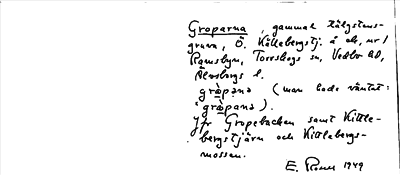 Groparna, gammal täljstens-
gruva, Ö. Källebergstj. å ek, ur /
Ramsbyn, Torrskogs sn, Vedbo hd,
Älvsborgs l.
gròpana (man hade väntat:
gròpana).
Jfr Gropebacken samt Kittle-
bergstjärn och Kittlebergs-
mossen.
E. 1949